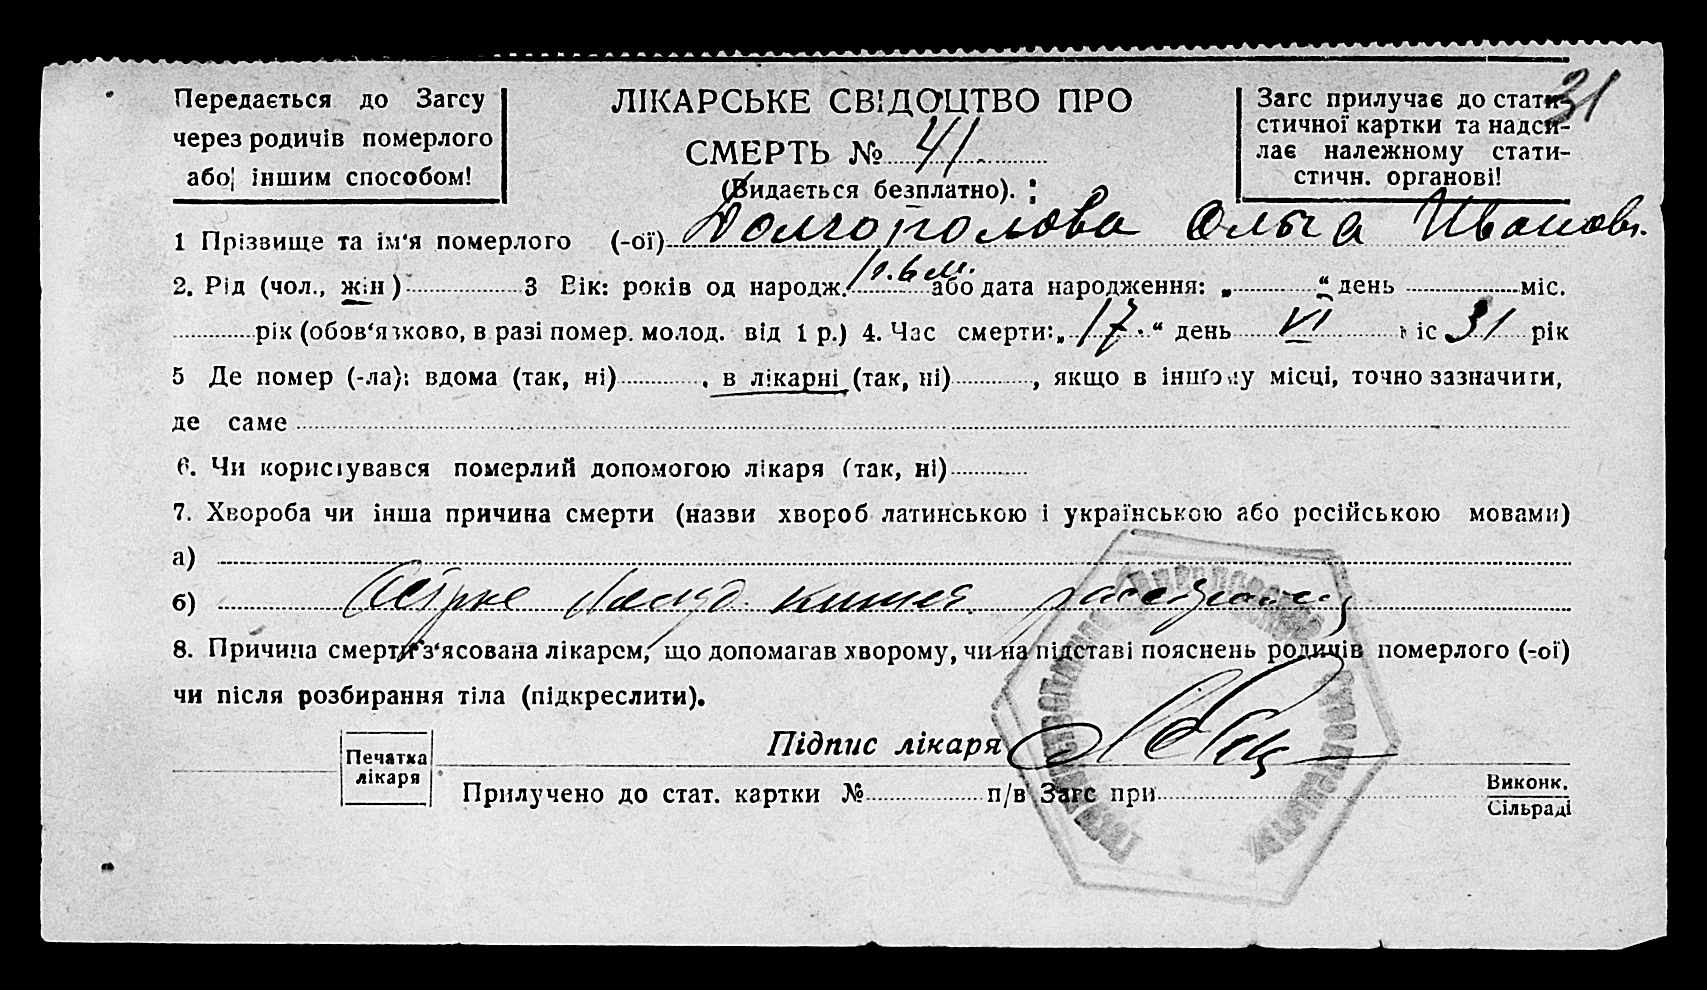 31
Передається до Загсу
через родичів померлого
або іншим способом!
ЛІКАРСЬКЕ СВІДОЦТВО ПРО
СМЕРТЬ № 41
(Видається безплатно).
Загс прилучає до стати-
стичної картки та надси-
лає належному стати-
стичн. органові!
1 Прізвище та ім'я померлого (-ої) Долгополова Ольга Иванов.
2. Рід (чол., жін) 3 Вік: років од народж. 1 г. 6 м. або дата народження: „ “ день міс.
рік (обов'язково, в разі помер. молод. від 1 р.) 4. Час смерти: „17“ день VI міс 31 рік
5 Де помер (-ла): вдома (так, ні) , в лікарні (так, ні) , якщо в іншому місці, точно зазначити,
де саме
6. Чи користувався померлий допомогою лікаря (так, ні)
7. Хвороба чи інша причина смерти (назви хвороб латинською і українською або російською мовами)
а)
б)
8. Причина смерти з'ясована лікарем, що допомагав хворому, чи на підставі пояснень родичів померлого (-ої)
чи після розбирання тіла (підкреслити).
Підпис лікаря
Печатка
лікаря
Прилучено до стат. картки № п/в Загс при
Виконк.
Сільраді